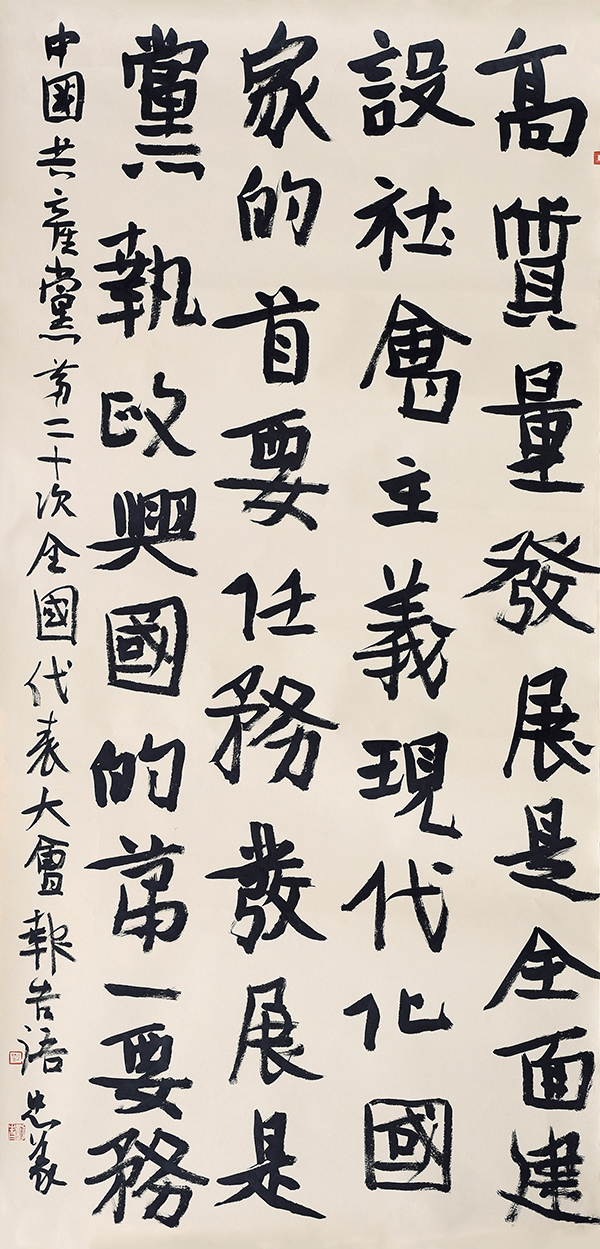 高質量發展是全面建
設社會主義現代化國
家的首要任務發展是
黨執政興國的第一要務
中國共產黨第二十次全國代表大會報告語 忠義